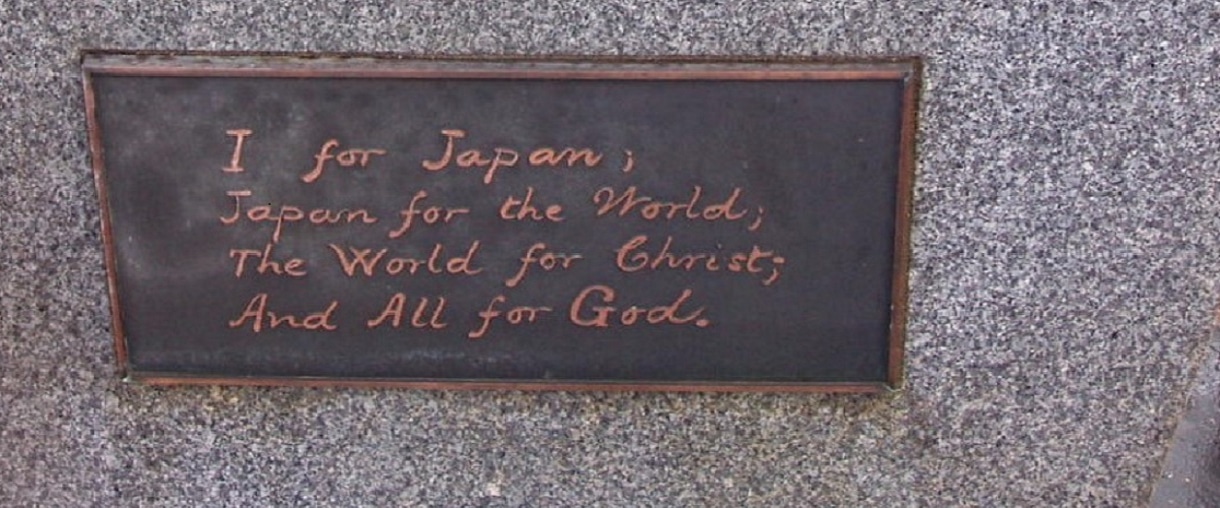 I for Japan;
Japan for the World;
The World for Christ;
And All for God.